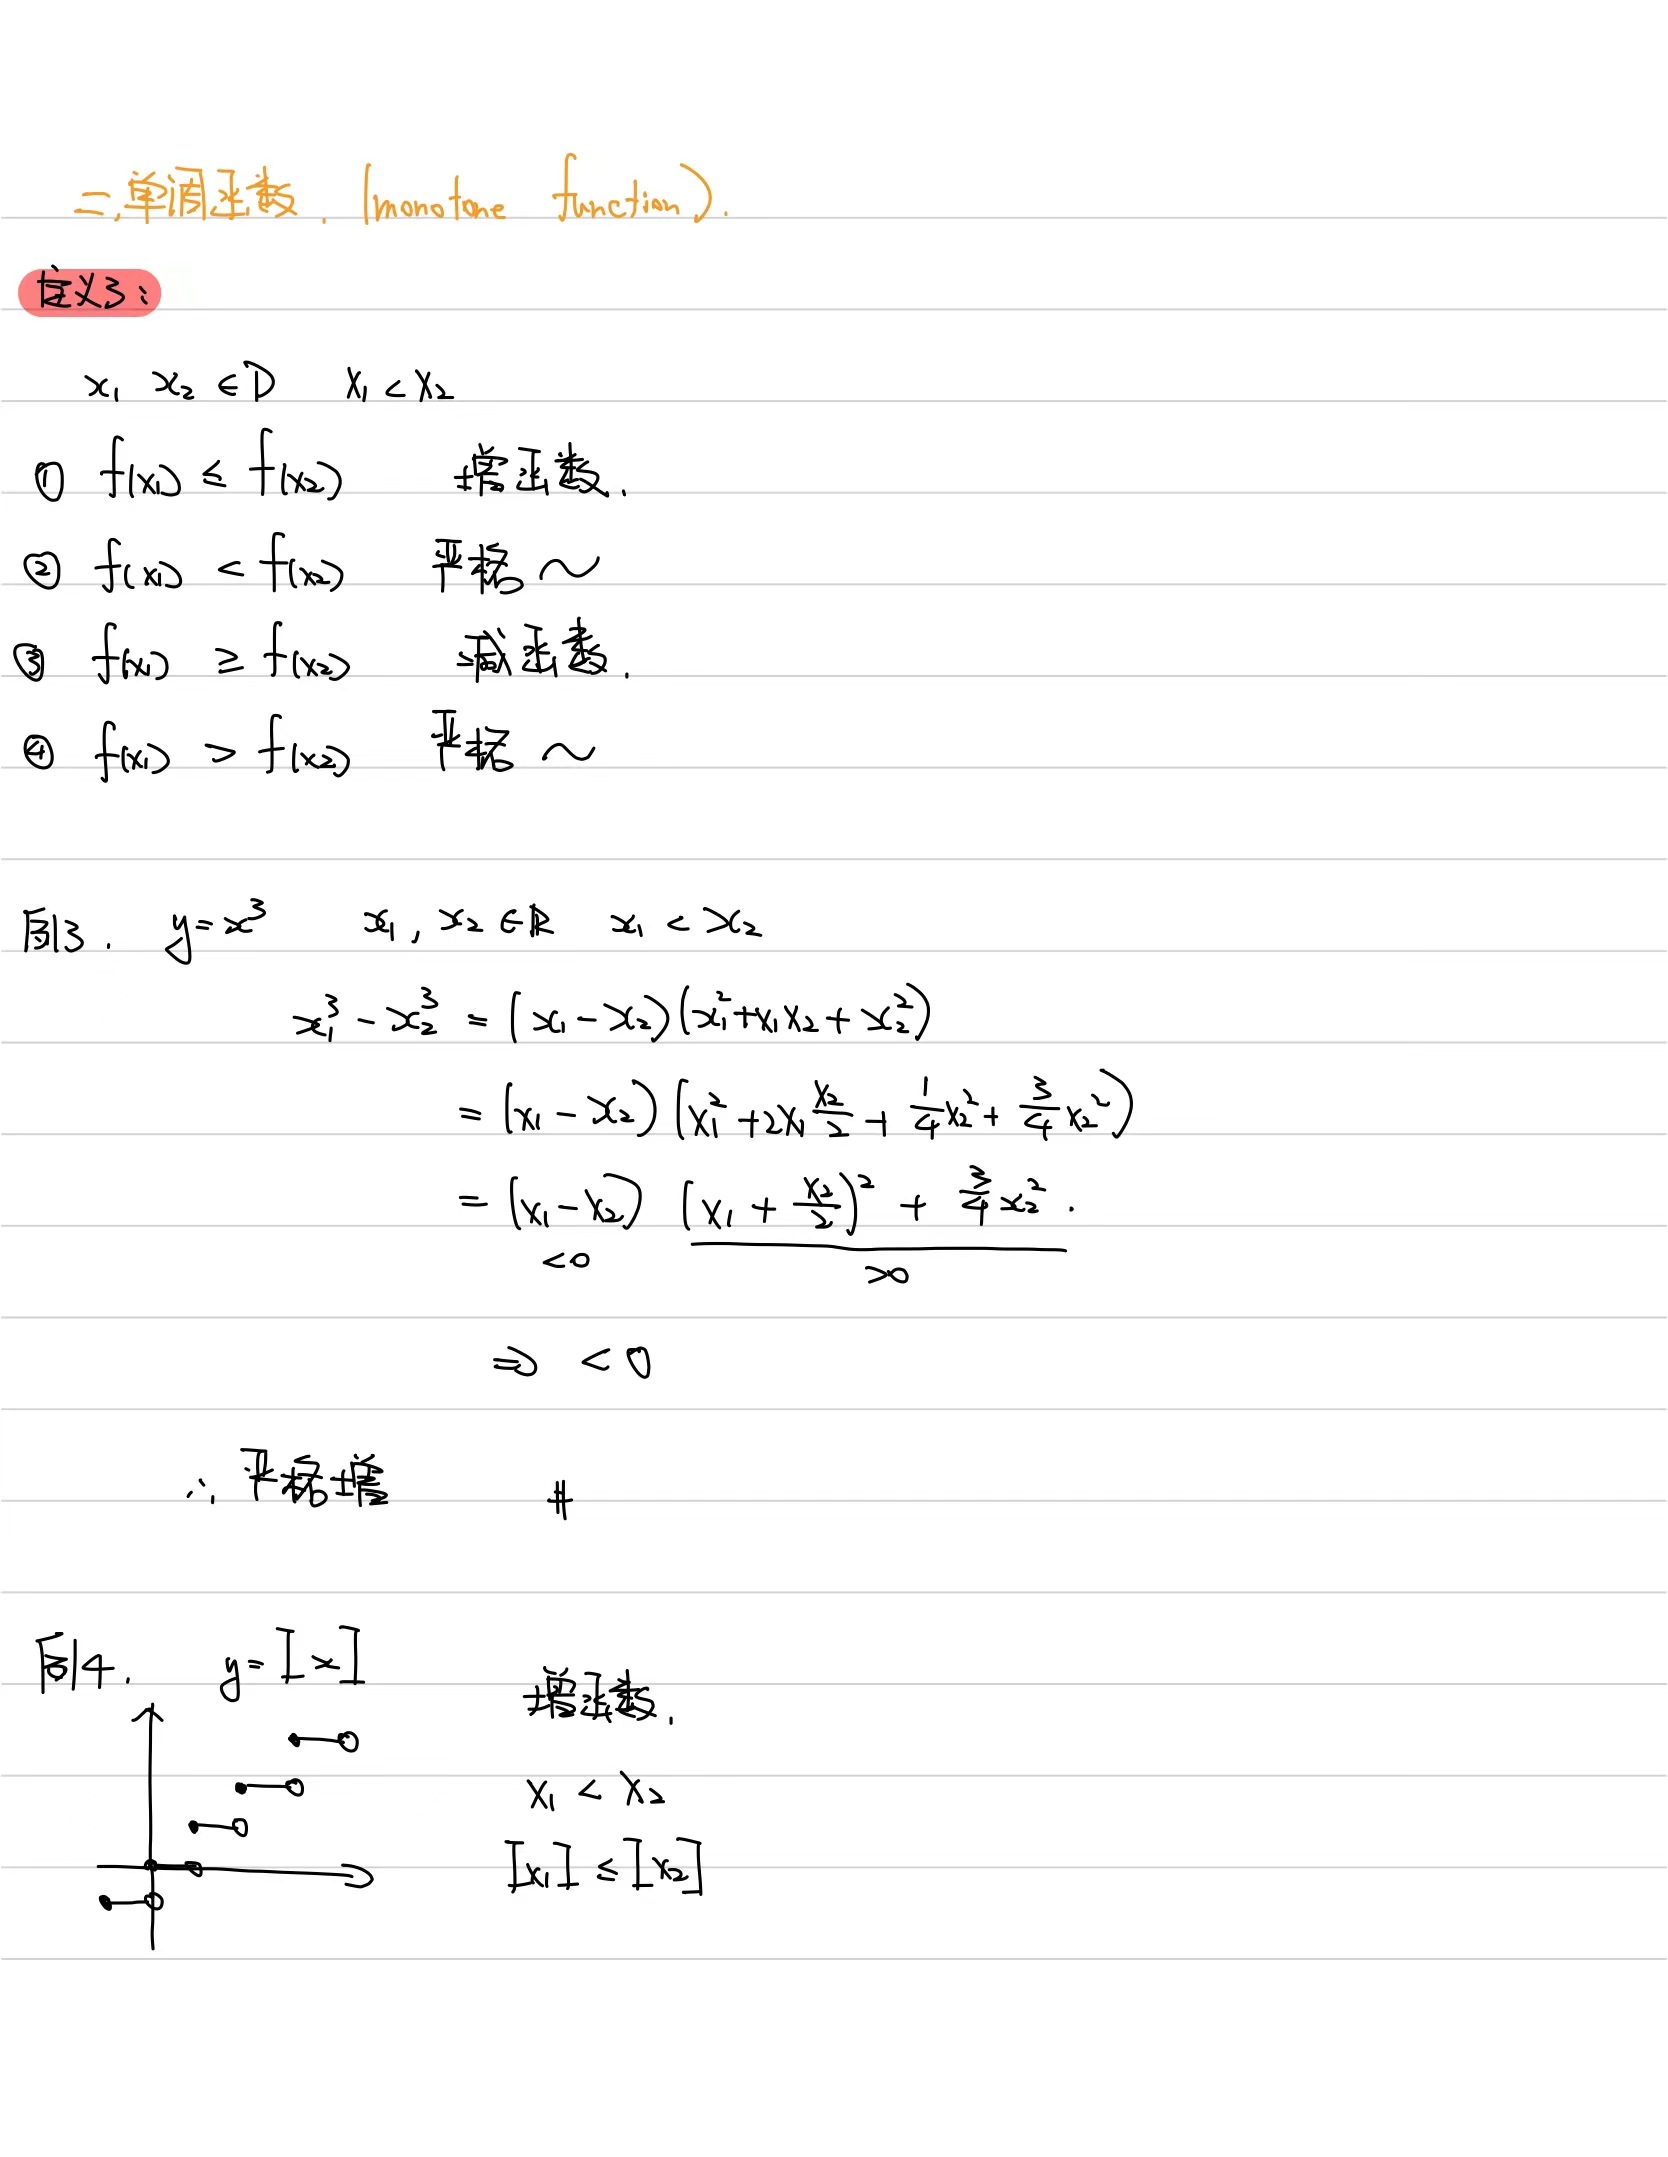 二、单调函数. (monotone function).
定义3:
x₁ x₂ ∈ D x₁ < x₂
① f(x₁) ≤ f(x₂) 增函数.
② f(x₁) < f(x₂) 严格 ~
③ f(x₁) ≥ f(x₂) 减函数.
④ f(x₁) > f(x₂) 严格 ~
例3. y=x³ x₁, x₂ ∈ ℝ x₁ < x₂
x₁³ - x₂³ = (x₁ - x₂)(x₁² + x₁x₂ + x₂²)
= (x₁ - x₂)(x₁² + 2x₁ x₂/2 + 1/4 x₂² + 3/4 x₂²)
= (x₁ - x₂) (x₁ + x₂/2)² + 3/4 x₂².
<0 >0
⇒ < 0
∴ 严格增 #
例4. y=[x] 增函数.
x₁ < x₂
[x₁] ≤ [x₂]